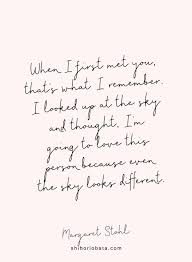 When I first met you,
that's what I remember.
I looked up at the sky
and thought, I'm
going to love this
person because even
the sky looks different.
Margaret Stohl
shihoriobata.com